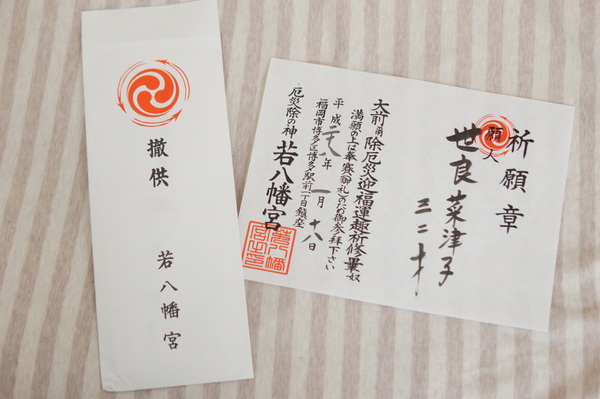 撤供
若八幡宮
祈願章
願人
世良菜津子
三二才
大前爾除厄災迎福運趣祈修畢奴
満願の上は奉賽御礼のため御参拝下さい
平成 年一月十八日
福岡市博多区博多駅前一丁目鎮座
厄災除の神 若八幡宮
若八幡宮之印